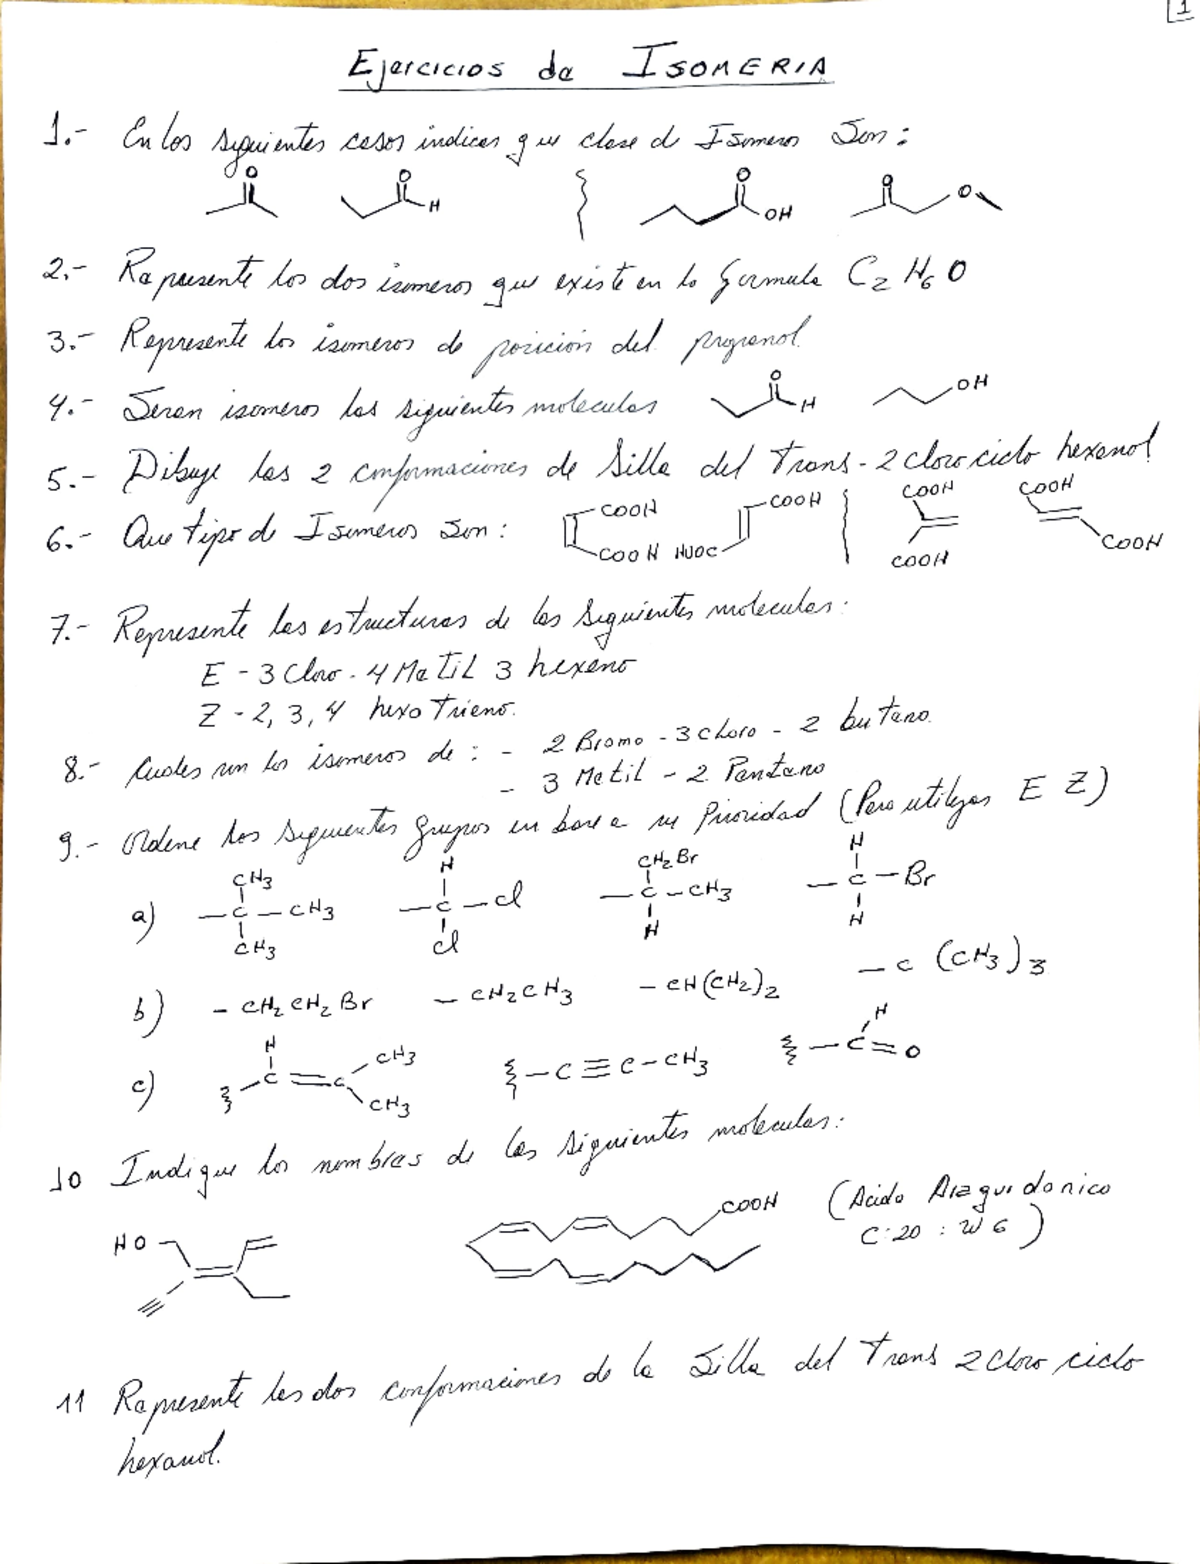 1
Ejercicios de ISOMERIA
1.- En los siguientes casos indicar que clase d Isomeros Son:
O O O O O
H OH
2.- Represente los dos isomeros que existe en la formula C2 H6 O
3.- Represente los isomeros de posición del propanol.
4.- Seran isomeros las siguientes moleculas O H OH
5.- Dibuje las 2 conformaciones de Silla del Trans-2 cloro ciclo hexanol
6.- Que tipo de Isomeros Son: COOH COOH COOH COOH
COOH HOOC COOH COOH
7.- Represente las estructuras de las siguientes moleculas:
E - 3 Cloro - 4 Metil 3 hexeno
Z - 2, 3, 4 hexo Trieno.
8.- Cuales son los isomeros de: - 2 Bromo - 3 cloro - 2 butano.
- 3 Metil - 2 Pentano
9.- Ordene los siguientes grupos en base a su Prioridad (Para utilizar E Z)
CH3 H CH2 Br H
a) - C - CH3 - C - Cl - C - CH3 - C - Br
CH3 Cl H H
b) - CH2 CH2 Br - CH2 CH3 - CH(CH2)2 - C (CH3)3
H CH3 H
c) C = C - C ≡ C - CH3 - C = O
CH3
10 Indique los nombres de las siguientes moleculas:
HO COOH (Acido Araquidonico
C:20 : W 6)
11 Represente las dos conformaciones de la Silla del Trans 2 cloro ciclo
hexanol.